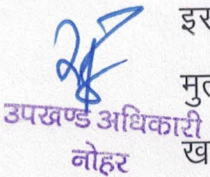 इस
मुत
उपखण्ड अधिकारी
नोहर ख